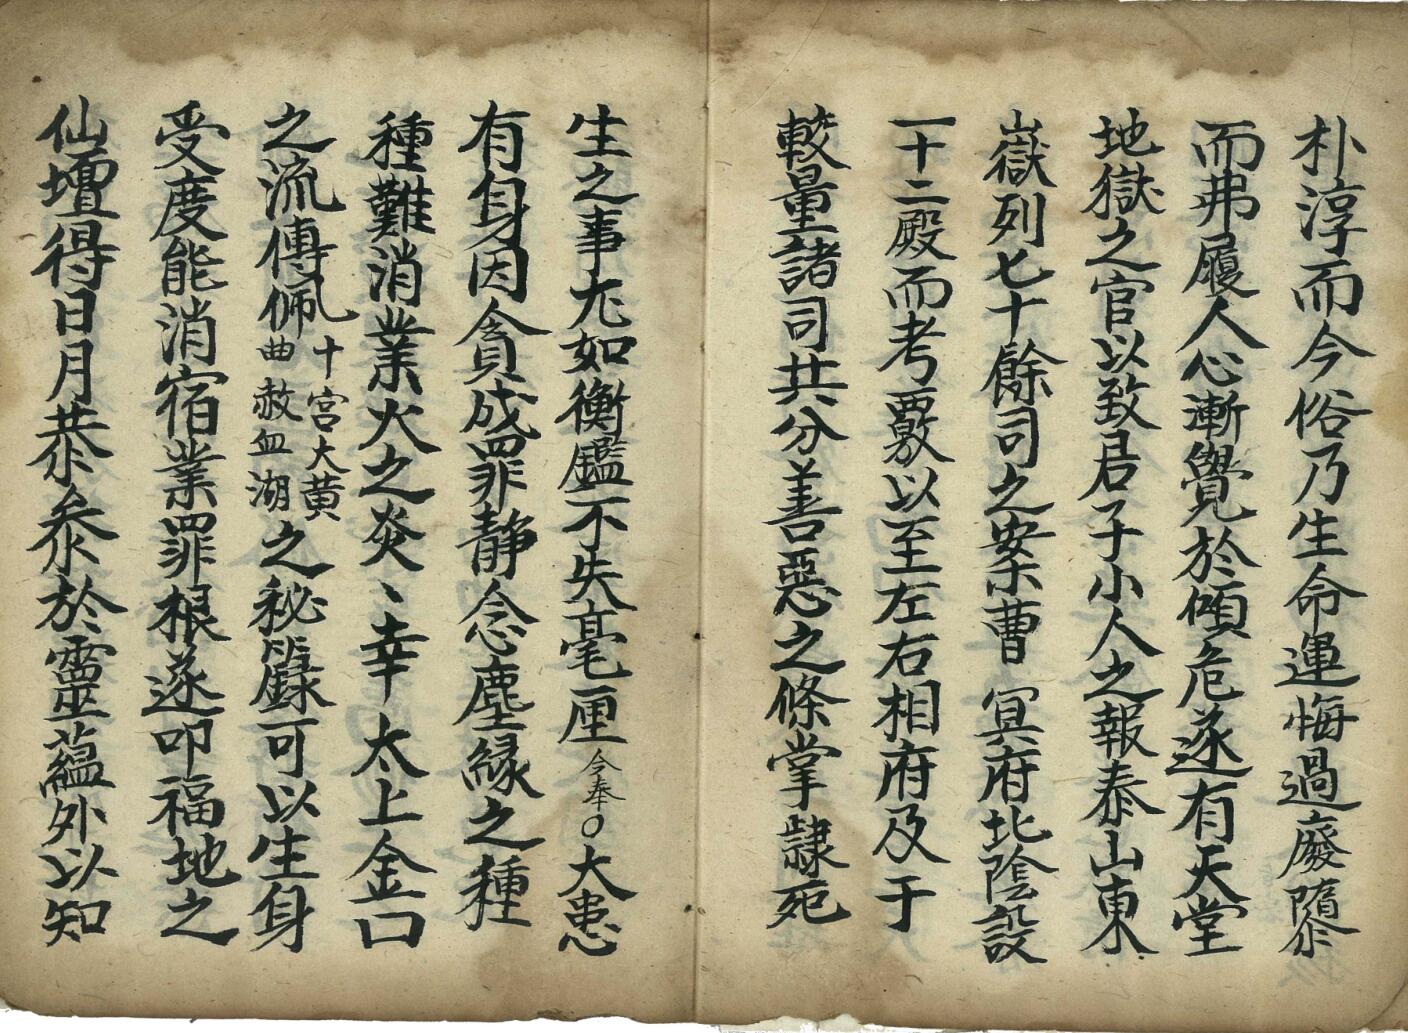 朴淳而今俗乃生命運悔過廢隳
而弗履人心漸覺於傾危遂有天堂
地獄之官以致君子小人之報泰山東
嶽列七十餘司之案曹冥府北陰設
一十二殿而考覈以至左右相府及于
較量諸司共分善惡之條掌隸死
生之事尢如衡鑑不失毫厘今奉〇大患
有身因貪成罪靜念塵緣之種
種難消業火之炎〻幸太上金口
之流傳佩十宮大黃
曲赦血湖之秘籙可以生身
受度能消宿業罪根遂叩福地之
仙壇得日月恭叅於靈蘊外以知